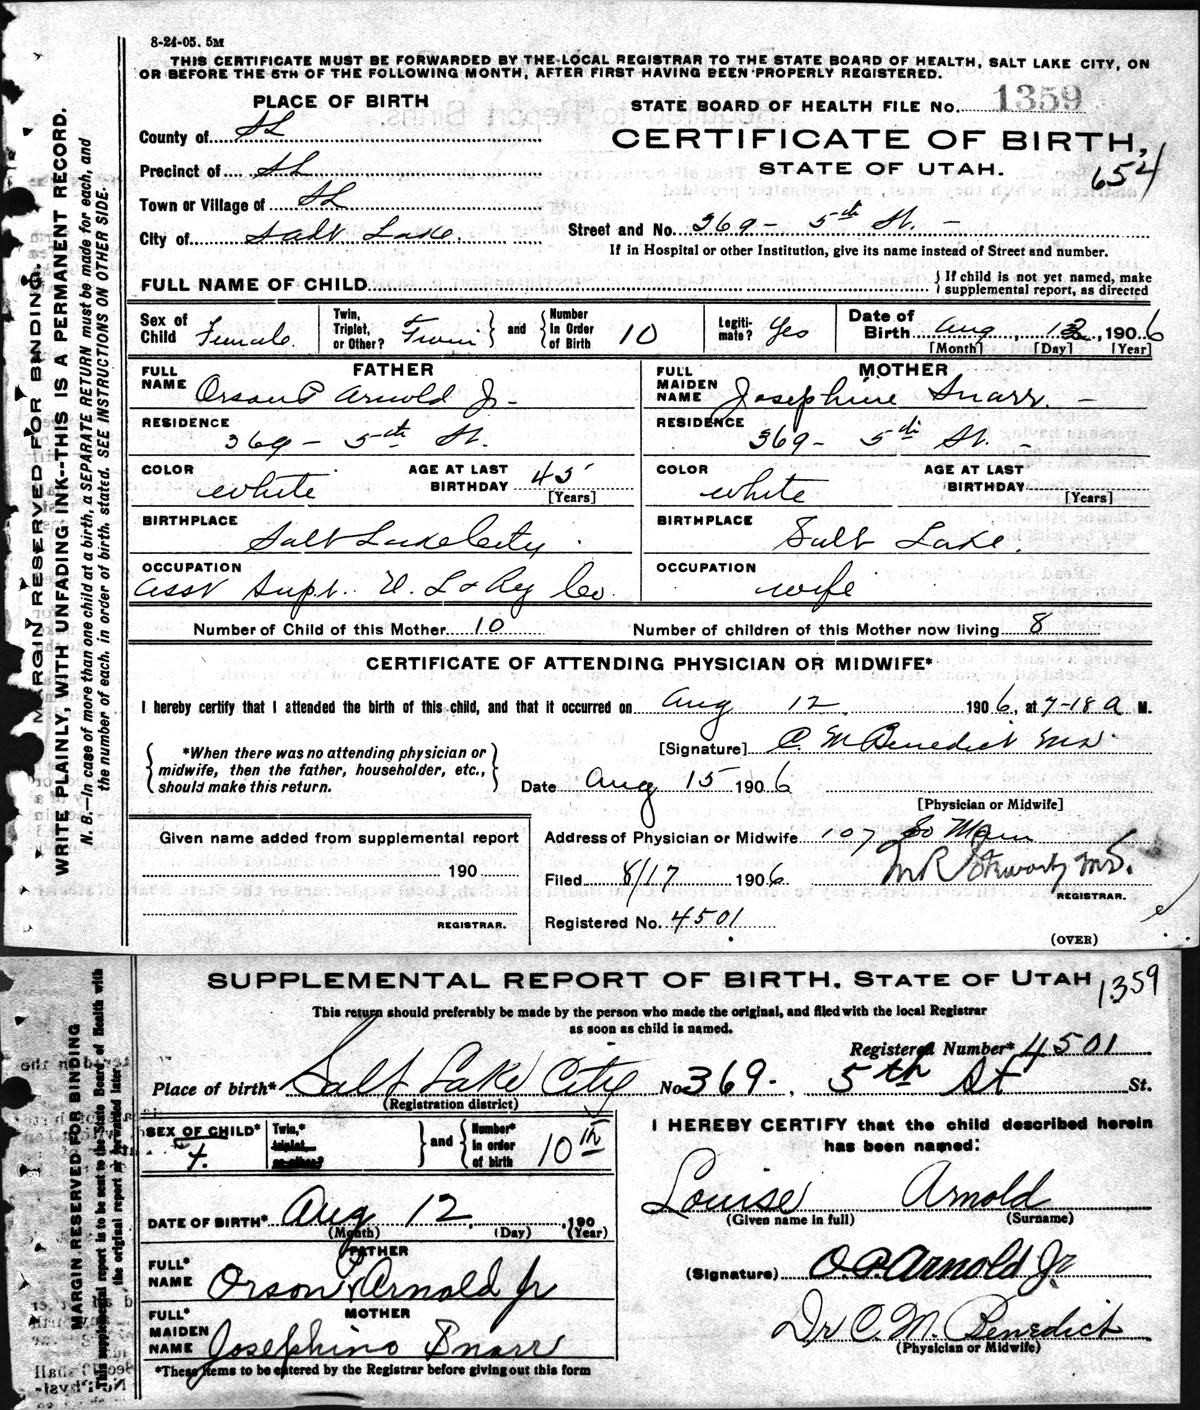 8-24-05. 5M
THIS CERTIFICATE MUST BE FORWARDED BY THE LOCAL REGISTRAR TO THE STATE BOARD OF HEALTH, SALT LAKE CITY, ON
OR BEFORE THE 5TH OF THE FOLLOWING MONTH, AFTER FIRST HAVING BEEN PROPERLY REGISTERED.
MARGIN RESERVED FOR BINDING.
WRITE PLAINLY, WITH UNFADING INK--THIS IS A PERMANENT RECORD.
N. B.--In case of more than one child at a birth, a SEPARATE RETURN must be made for each, and
the number of each, in order of birth, stated. SEE INSTRUCTIONS ON OTHER SIDE.
PLACE OF BIRTH
County of SL
Precinct of SL
Town or Village of SL
City of Salt Lake
STATE BOARD OF HEALTH FILE No. 1359
CERTIFICATE OF BIRTH,
STATE OF UTAH.
654
Street and No. 369 - 5th St. -
If in Hospital or other Institution, give its name instead of Street and number.
FULL NAME OF CHILD
{If child is not yet named, make
supplemental report, as directed
Sex of Child Female
Twin, Triplet, or Other? Twin } and { Number In Order of Birth 10
Legitimate? Yes
Date of Birth Aug, 12, 1906
[Month] [Day] [Year]
FATHER
FULL NAME Orson P Arnold Jr -
RESIDENCE 369 - 5th St.
COLOR white AGE AT LAST BIRTHDAY 45 [Years]
BIRTHPLACE Salt Lake City.
OCCUPATION Asst Supt. U. L & Ry Co.
MOTHER
FULL MAIDEN NAME Josephine Snarr. -
RESIDENCE 369 - 5th St. -
COLOR white AGE AT LAST BIRTHDAY [Years]
BIRTHPLACE Salt Lake.
OCCUPATION wife
Number of Child of this Mother 10 Number of children of this Mother now living 8
CERTIFICATE OF ATTENDING PHYSICIAN OR MIDWIFE*
I hereby certify that I attended the birth of this child, and that it occurred on Aug 12, 1906, at 7-18 a M.
{ *When there was no attending physician or
midwife, then the father, householder, etc.,
should make this return. }
[Signature] C. M Benedict MD.
Date Aug 15 1906
[Physician or Midwife]
Given name added from supplemental report
190
REGISTRAR.
Address of Physician or Midwife 107 So Main
Filed 8/17 1906 M.D.
REGISTRAR.
Registered No. 4501
(OVER)
SUPPLEMENTAL REPORT OF BIRTH. STATE OF UTAH 1359
This return should preferably be made by the person who made the original, and filed with the local Registrar
as soon as child is named.
MARGIN RESERVED FOR BINDING
This supplemental report is to be sent to the State Board of Health with
the original report or forwarded later
Registered Number* 4501
Place of birth* Salt Lake City No 369. 5th St St.
(Registration district)
SEX OF CHILD* f.
Twin,* triplet, or other? } and { Number* In order of birth 10th
DATE OF BIRTH* Aug 12, 190
(Month) (Day) (Year)
FATHER
FULL* NAME Orson P. Arnold Jr
MOTHER
FULL* MAIDEN NAME Josephine Snarr
*These items to be entered by the Registrar before giving out this form
I HEREBY CERTIFY that the child described herein
has been named:
Louise Arnold
(Given name in full) (Surname)
(Signature) O. P. Arnold Jr
Dr C. M. Benedict
(Physician or Midwife)